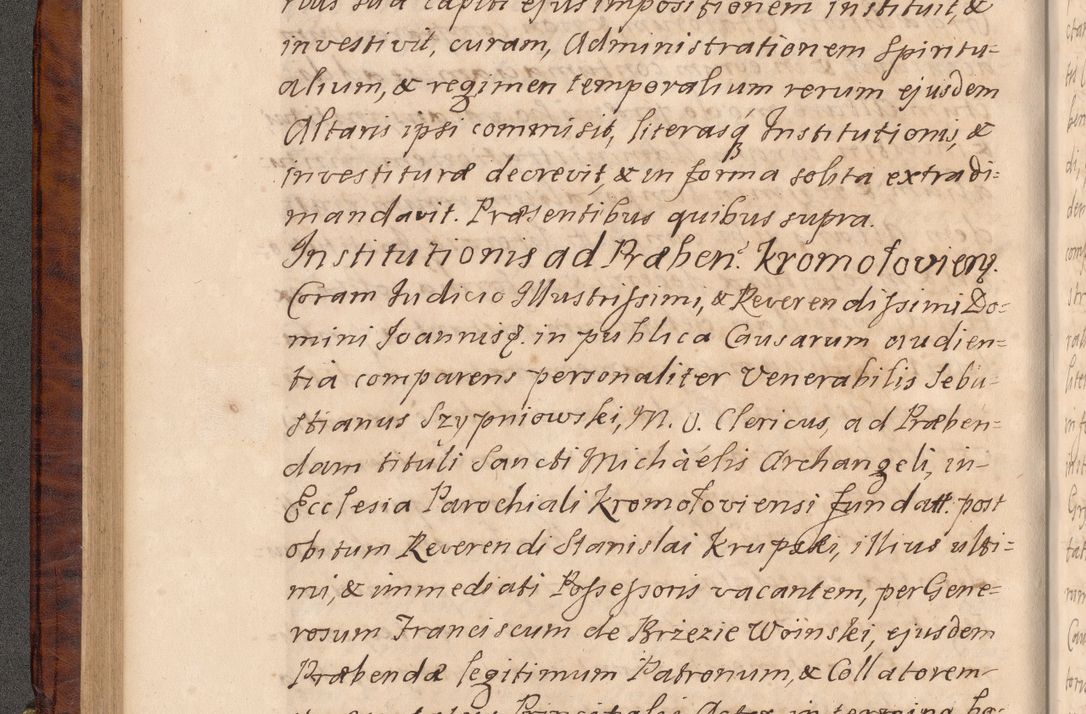 sua capiti ejus impositionem instituit, &
investivit, curam, Administrationem Spiritu=
alium, & regimen temporalium rerum ejusdem
Altaris ipsi commisit, literasq́ Institutionis, &
investituræ decrevit, & in forma solita extradi=
mandavit. Præsentibus quibus supra.
Institutionis ad Præben: Kromołovien.
Coram Iudicio Illustrissimi, & Reverendissimi Do=
mini Joannisq. in publica Causarum audien=
tia comparens personaliter Venerabilis Seba=
stianus Szypniowski, M. O. Clericus, ad Præben=
dam tituli Sancti Michaélis Archangeli, in-
Ecclesia Parochiali Kromołoviensi fundatt. post
obitum Reverendi Stanislai Krupski, illius ulti=
mi, & immediati Possessoris vacantem, per Gene=
rosum Franciscum de Brzezie Woinski, ejusdem
Præbendæ legitimum Patronum, & Collatorem-